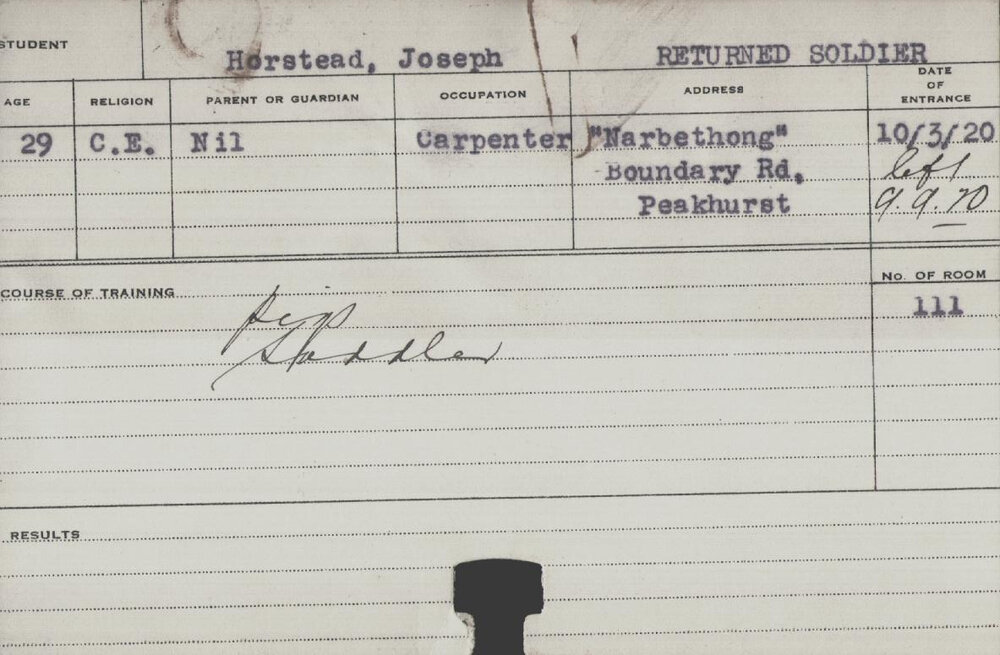 STUDENT
Horstead, Joseph RETURNED SOLDIER
AGE RELIGION PARENT OR GUARDIAN OCCUPATION ADDRESS DATE OF ENTRANCE
29 C.E. Nil Carpenter "Narbethong" 10/3/20
Boundary Rd, left
Peakhurst 9.9.20
COURSE OF TRAINING No. OF ROOM
111
Saddler
RESULTS